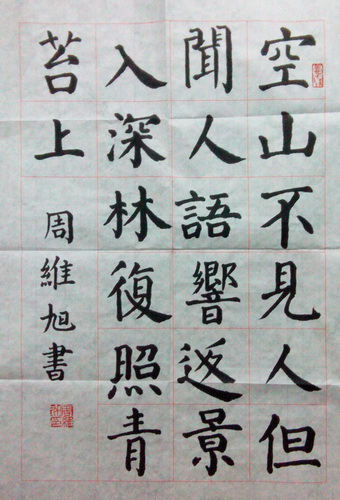 空山不見人但
聞人語響返景
入深林復照青
苔上
周維旭書